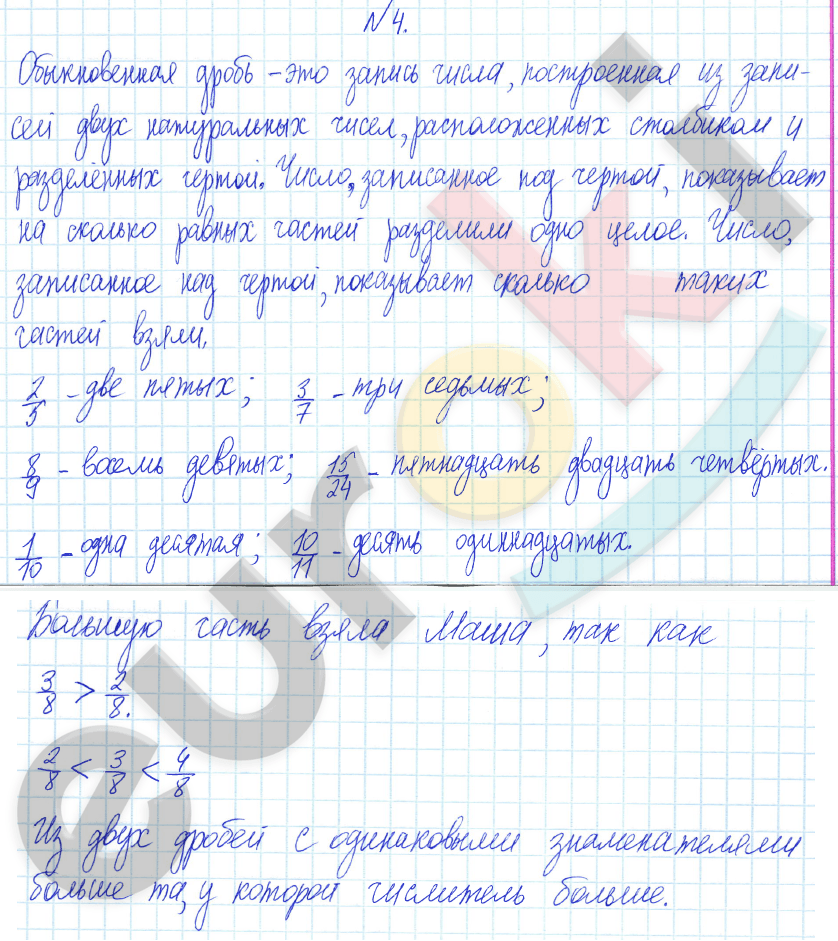 №4.
Обыкновенная дробь – это запись числа, построенная из запи-
сей двух натуральных чисел, расположенных столбиком и
разделённых чертой. Число, записанное под чертой, показывает
на сколько равных частей разделили одно целое. Число,
записанное над чертой, показывает сколько таких
частей взяли.
2/5 – две пятых; 3/7 – три седьмых;
8/9 – восемь девятых; 15/24 – пятнадцать двадцать четвёртых.
1/10 – одна десятая; 10/11 – десять одиннадцатых.
Большую часть взяла Маша, так как
3/8 > 2/8.
2/8 < 3/8 < 4/8
Из двух дробей с одинаковыми знаменателями
больше та, у которой числитель больше.
euroki